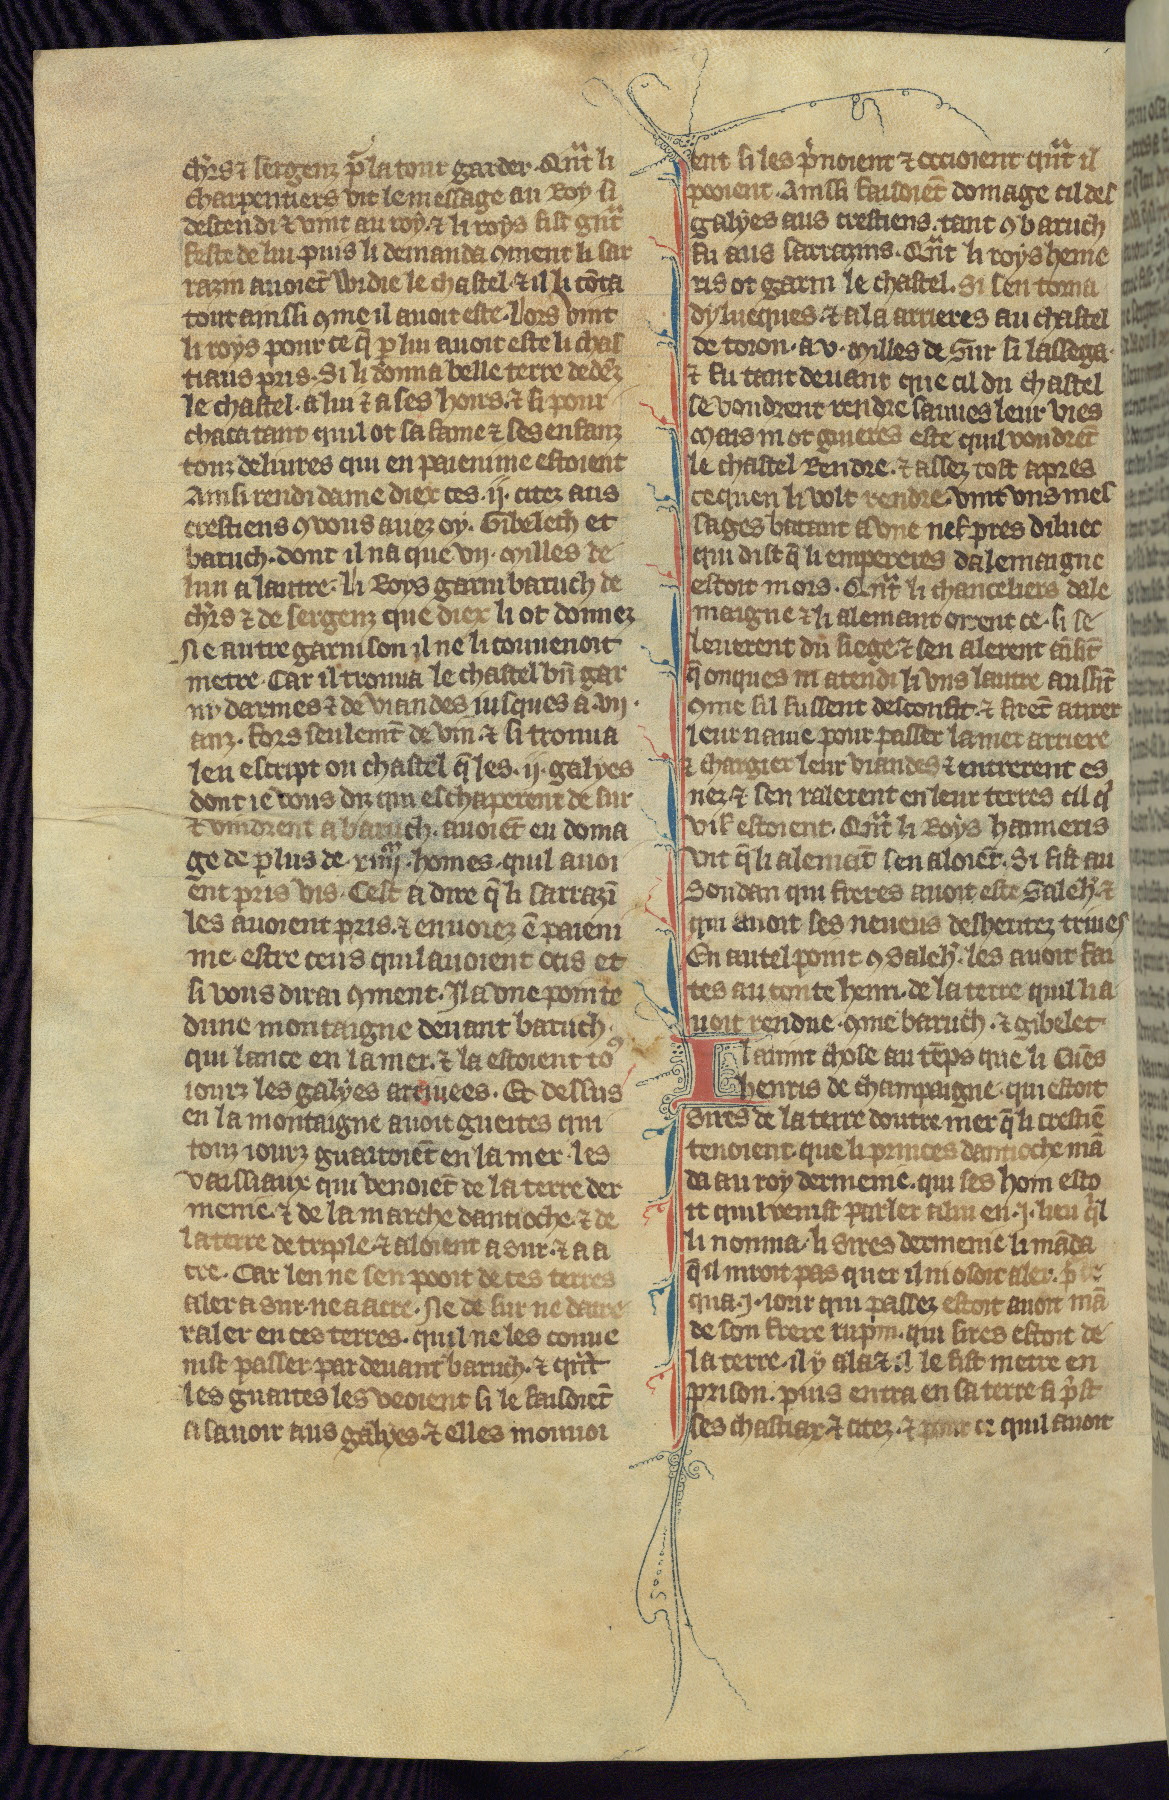 chrs ⁊ sergenz p̄ la tour garder. Qn̄t li
charpentiers vit le message au Roy si
descendi ⁊ vint au roy. ⁊ li roys fist gn̄t
feste de lui. puis li demanda ꝯment li sar
razin auoiēt widie le chastel. ⁊ il li cōta
tout ainssi ꝯme il auoit este. Lors vint
li roys pour ce q̄ ꝑ lui auoit este li chas
tiaus pris. Si li donna belle terre dedēz
le chastel. a lui ⁊ a ses hoirs. ⁊ si pour
chaca tant quil ot sa fame ⁊ ses enfanz
touz deliures qui en paienime estoient
Ainsi rendi dame diex ces .ij. citez aus
crestiens ꝯ vous auez oy. Gibeleth et
baruch. dont il na que vij. milles de
lun a lautre. li Roys garni baruch de
chrs ⁊ de sergenz que diex li ot donnez
Ne autre garnison il ne li conuenoit
metre. Car il trouua le chastel bn̄ gar
ny darmes ⁊ de viandes iusques a .vij.
anz. fors seulemt̄ de vin. ⁊ si trouua
len escript ou chastel q̄ les .ij. galyes
dont ie vous dis qui eschaperent de sur
⁊ vindrent a baruch. auoiēt eu doma
ge de plus de .xiiij. homes. quil auoi
ent pris vis. Cest a dire q̄ li sarrazī
les auoient pris. ⁊ enuoiez ē paieni
me. estre ceus quil auoient ocis et
si vous dirai ꝯment. Il a vne pointe
dune montaigne deuant baruch.
qui lance en la mer. ⁊ la estoient toꝰ
iourz les galyes armees. Et dessus
en la montaigne auoit gueites qui
touz iourz guaitoiēt en la mer. les
vaissiaux qui venoiēt de la terre der
menie. ⁊ de la marche dantioche. ⁊ de
la terre de triple. ⁊ aloient a sur. ⁊ a a
cre. Car len ne sen pooit de ces terres
aler a sur. ne a acre. Ne de sur ne dacre
raler en ces terres. quil ne les conue
nist passer par deuant baruch. ⁊ qn̄t
les guaites les veoient si le faisoiēt
a sauoir aus galyes. ⁊ elles mouuoi
ent si les p̄noient ⁊ occioient qn̄t il
pooient. Ainssi faisoiēt domage cil des
galyes aus crestiens. tant ꝯ baruch
fu aus sarrazins. Qn̄t li roys heme
ris ot garni le chastel. Si sen torna
dyluecques. ⁊ ala arrieres au chastel
de toron. a .v. milles de Sur si lassega.
⁊ fu tant deuant que cil du chastel
se voudrent rendre sauues leur vies
Mais ni ot guieres este quil voudrēt
le chastel Rendre. ⁊ assez tost apres
ce quen li volt rendre. vint vns mes
sages batant a vne nef pres diluec
qui dist q̄ li empereres dalemaigne
estoit mors. Qn̄t li chanceliers dale
maigne ⁊ li alemant oirent ce. si se
leuerent du siege ⁊ sen alerent
q̄ onques ni atendi li vns lautre aussit̄
ꝯme sil fussent desconfit. ⁊ firēt atirer
leur nauie pour passer la mer arriere
⁊ chargier leur viandes ⁊ entrerent es
nez. ⁊ sen ralerent en leur terres cil q̄
vif estoient. Qn̄t li Roys haimeris
vit q̄ li alemāt sen aloiēt. Si fist au
Soudan qui freres auoit este Saleh̄. ⁊
qui auoit ses neueus desheritez triues
En autel point ꝯ Saleh̄. les auoit fai
tes au conte henri. de la terre quil li a
uoit rendue. ꝯme baruch. ⁊ gibelet.
Il auint chose au tēps que li Cuēs
henris de champaigne. qui estoit
sires de la terre doutre mer q̄ li crestiē
tenoient. que li princes dantioche mā
da au roy dermenie. qui ses hom esto
it quil venist parler a lui en .j. lieu q̄l
li nomma. li sires dermenie li māda
q̄ il niroit pas quer il ni osoit aler. p̄ ce
qua .j. iour qui passez estoit auoit mā
de son frere rupin. qui sires estoit de
la terre. il y ala ⁊ il le fist metre en
prison. puis entra en sa terre si p̄st
ses chastiax ⁊ citez. ⁊ pour ce quil auoit